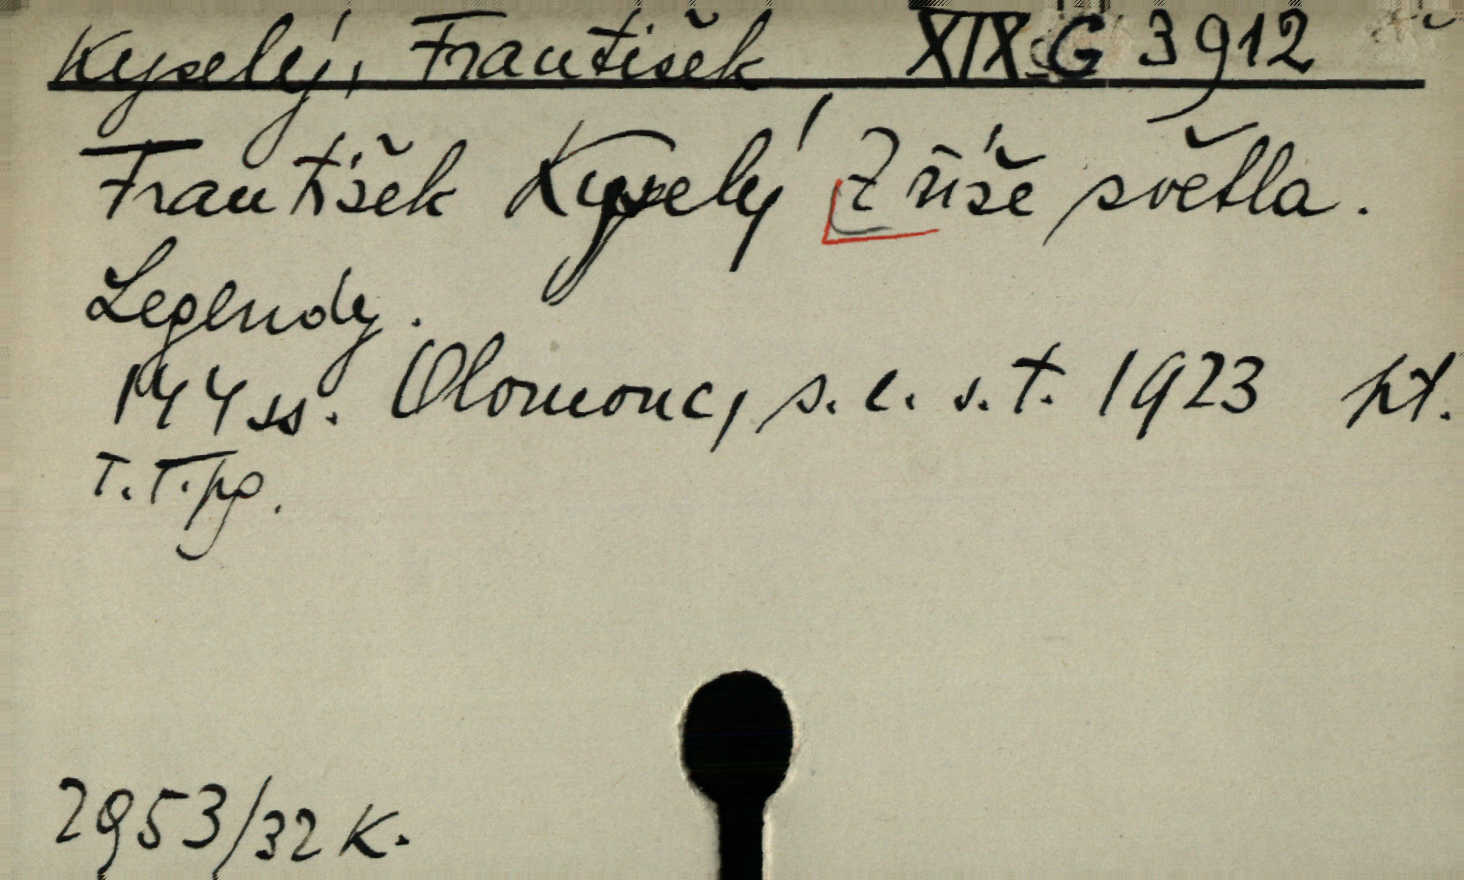 Kyselý, František XIX G 3912
František Kyselý Z říše světla.
Legendy.
144 ss. Olomouc, s. e. s. t. 1923 pt.
T. T. pg.
2953/32 K.